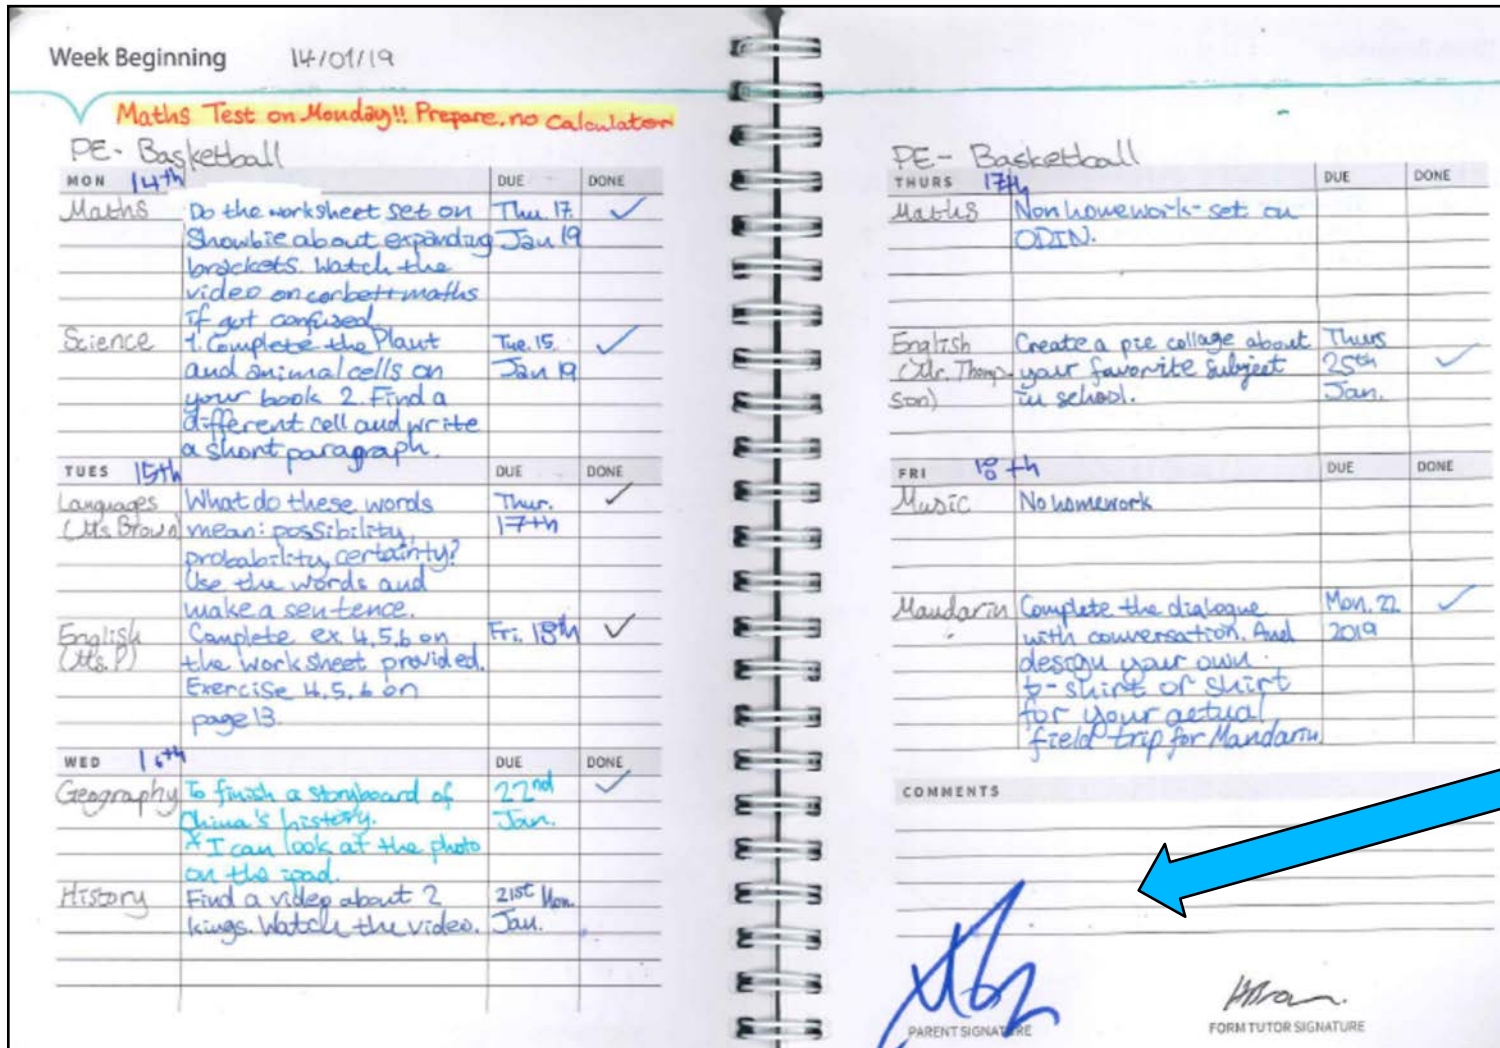 Week Beginning 14/01/19
Maths Test on Monday!! Prepare, no calculator
PE - Basketball
MON 14th DUE DONE
Maths Do the worksheet set on Thu. 17. ✓
Showbie about expanding Jan 19
brackets. Watch the
video on corbettmaths
if got confused
Science 1. Complete the Plant Tue. 15. ✓
and animal cells on Jan 19
your book 2. Find a
different cell and write
a short paragraph.
TUES 15th DUE DONE
Languages What do these words Thur. ✓
(Ms. Brown) mean: possibility, 17th
probability, certainty?
Use the words and
make a sentence.
English Complete ex 4,5,6 on Fri. 18th ✓
(Ms. P) the worksheet provided.
Exercise 4,5,6 on
page 13.
WED 16th DUE DONE
Geography To finish a storyboard of 22nd ✓
China's history. Jan.
*I can look at the photo
on the ipad.
History Find a video about 2 21st Mon.
kings. Watch the video. Jan.
PE - Basketball
THURS 17th DUE DONE
Maths Non homework - set on
ODIN.
English Create a pie collage about Thurs ✓
(Mr. Thomp- your favorite subject 25th
son) in school. Jan.
FRI 18th DUE DONE
Music No homework
Mandarin Complete the dialogue Mon. 22 ✓
with conversation. And 2019
design your own
t-shirt or shirt
for your actual
field trip for Mandarin.
COMMENTS
PARENT SIGNATURE
FORM TUTOR SIGNATURE